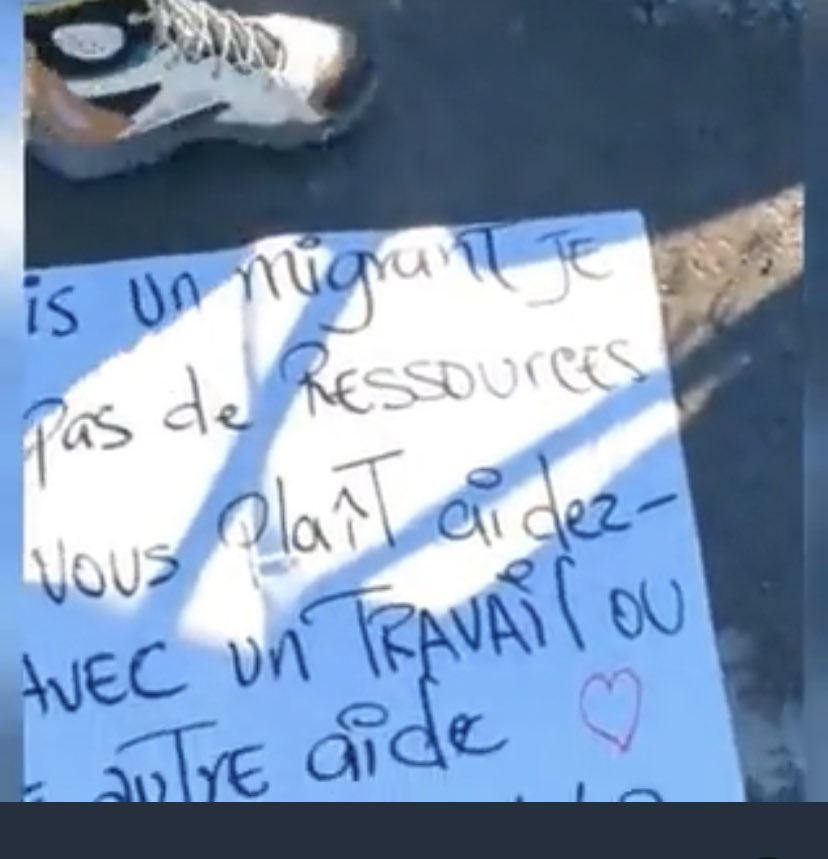 is un migrant JE
Pas de RESSOURCES
VOUS Plaît aidez-
AVEC un TRAVAil OU
AUTRE aide ♡